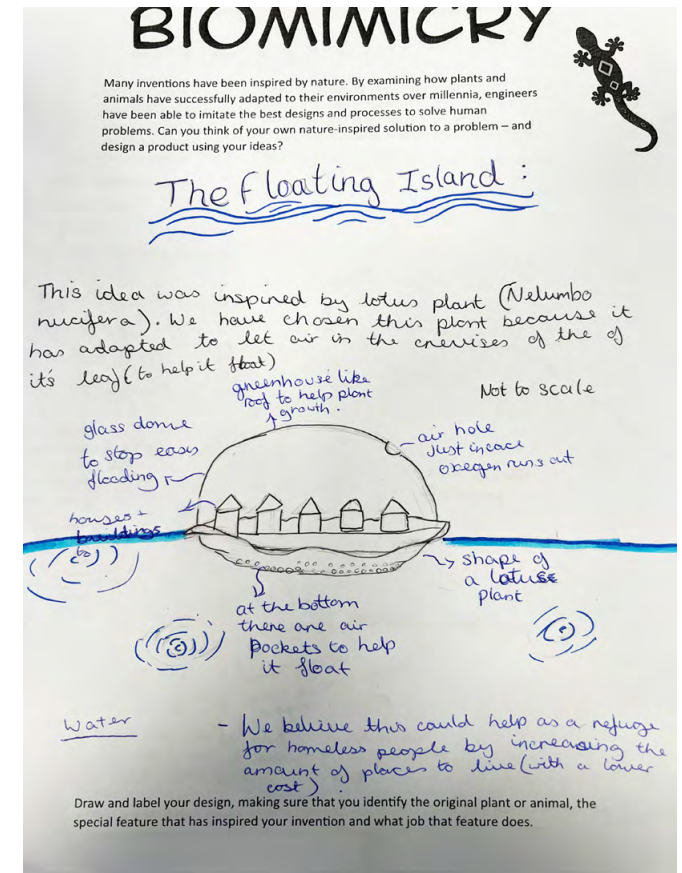 BIOMIMICRY
Many inventions have been inspired by nature. By examining how plants and
animals have successfully adapted to their environments over millennia, engineers
have been able to imitate the best designs and processes to solve human
problems. Can you think of your own nature-inspired solution to a problem – and
design a product using your ideas?
The Floating Island :
This idea was inspired by lotus plant (Nelumbo
nucifera). We have chosen this plant because it
has adapted to let air in the crevises of the of
it's leaf (to help it float)
greenhouse like
roof to help plant
growth.
Not to scale
glass dome
to stop easy
flooding
air hole
Just incace
oxegen runs out
houses +
buildings
shape of
a lotuse
plant
at the bottom
there are air
pockets to help
it float
Water
- We believe this could help as a refuge
for homeless people by increasing the
amount of places to live (with a lower
cost).
Draw and label your design, making sure that you identify the original plant or animal, the
special feature that has inspired your invention and what job that feature does.